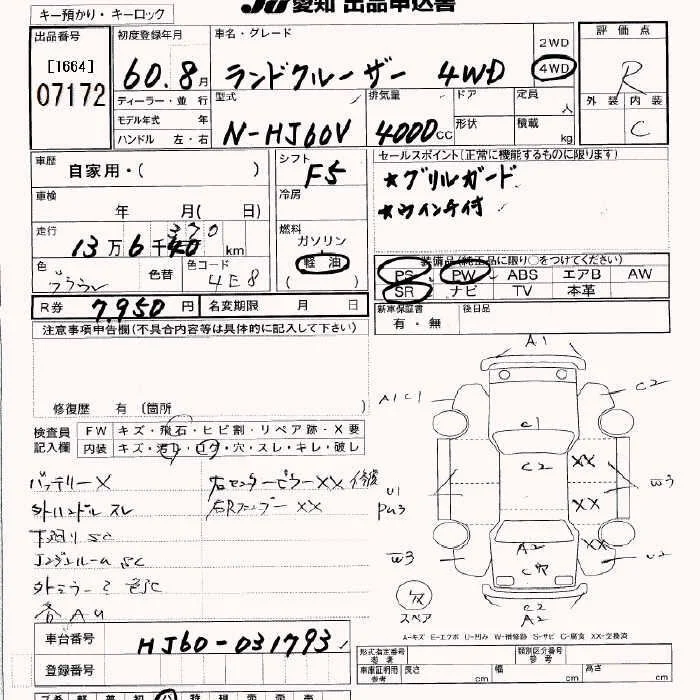 JU 愛知 出品申込書
キー預かり・キーロック
出品番号
[1664]
07172
初度登録年月
60.8月
車名・グレード
ランドクルーザー 4WD
2WD
4WD
評価点
R
外装 内装
C
ディーラー・並行
モデル年式 年
ハンドル 左・右
型式
N-HJ60V
排気量
4000cc
ドア
形状
定員
人
積載
kg
車歴
自家用・( )
シフト
F5
セールスポイント(正常に機能するものに限ります)
★グリルガード
★ウインチ付
車検
年 月( 日)
冷房
走行
13万6千370km
燃料
ガソリン
軽油
( )
色
ブラウン
色替
色コード
4E8
装備品(純正品に限り○をつけてください)
PS PW ABS エアB AW
SR ナビ TV 本革
R券
7,950円
名変期限 月 日
新車保証書
有・無
後日品
注意事項申告欄(不具合内容等は具体的に記入して下さい)
修復歴 有 [箇所 )
検査員
記入欄
FW キズ・飛石・ヒビ割・リペア跡・X要
内装 キズ・汚レ・コゲ・穴・スレ・キレ・破レ
バッテリーX
右センターピラーXX 修復
外ハンドル スレ
右Rフェンダー XX
下回り SC
エンジンルーム SC
各AU
A1
A1C1
C2
C1
C2
XX
XX
XX
U1
PW3
W3
W3
U2
A2
C2
A2
スペア
A-キズ E-エクボ U-凹み W-補修跡 S-サビ C-腐食 XX-交換済
車台番号
HJ60-031793
登録番号
形式指定番号
参考
類別区分番号
参考
車庫証明用
参考
長さ cm
幅 cm
高さ cm